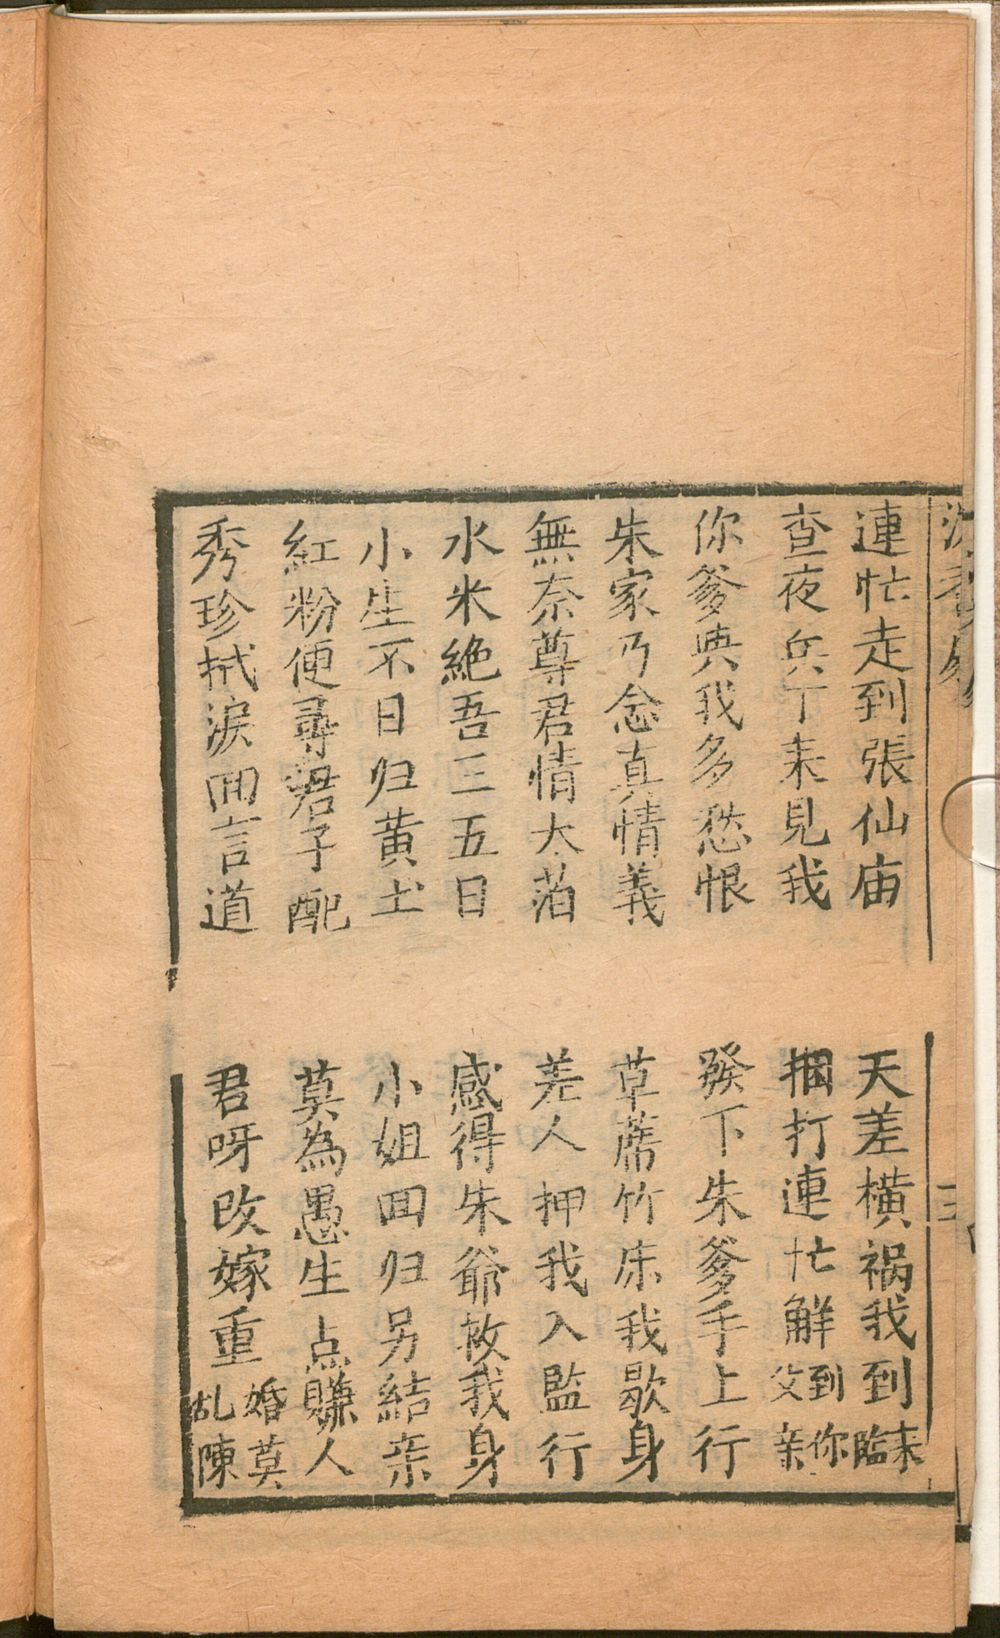 連忙走到張仙庙
天差橫祸我到来臨
查夜兵丁来見我
捆打連忙觧到你父亲
你爹典我多愁恨
發下朱爹手上行
朱家乃念真情義
草蓆竹床我歇身
無奈尊君情大泊
差人押我入監行
水米絶吾三五日
感得朱爺救我身
小生不日归黄土
小姐囬归另結亲
紅粉便尋君子配
莫為愚生点賺人
秀珍拭淚囬言道
君呀改嫁重婚莫乱陳